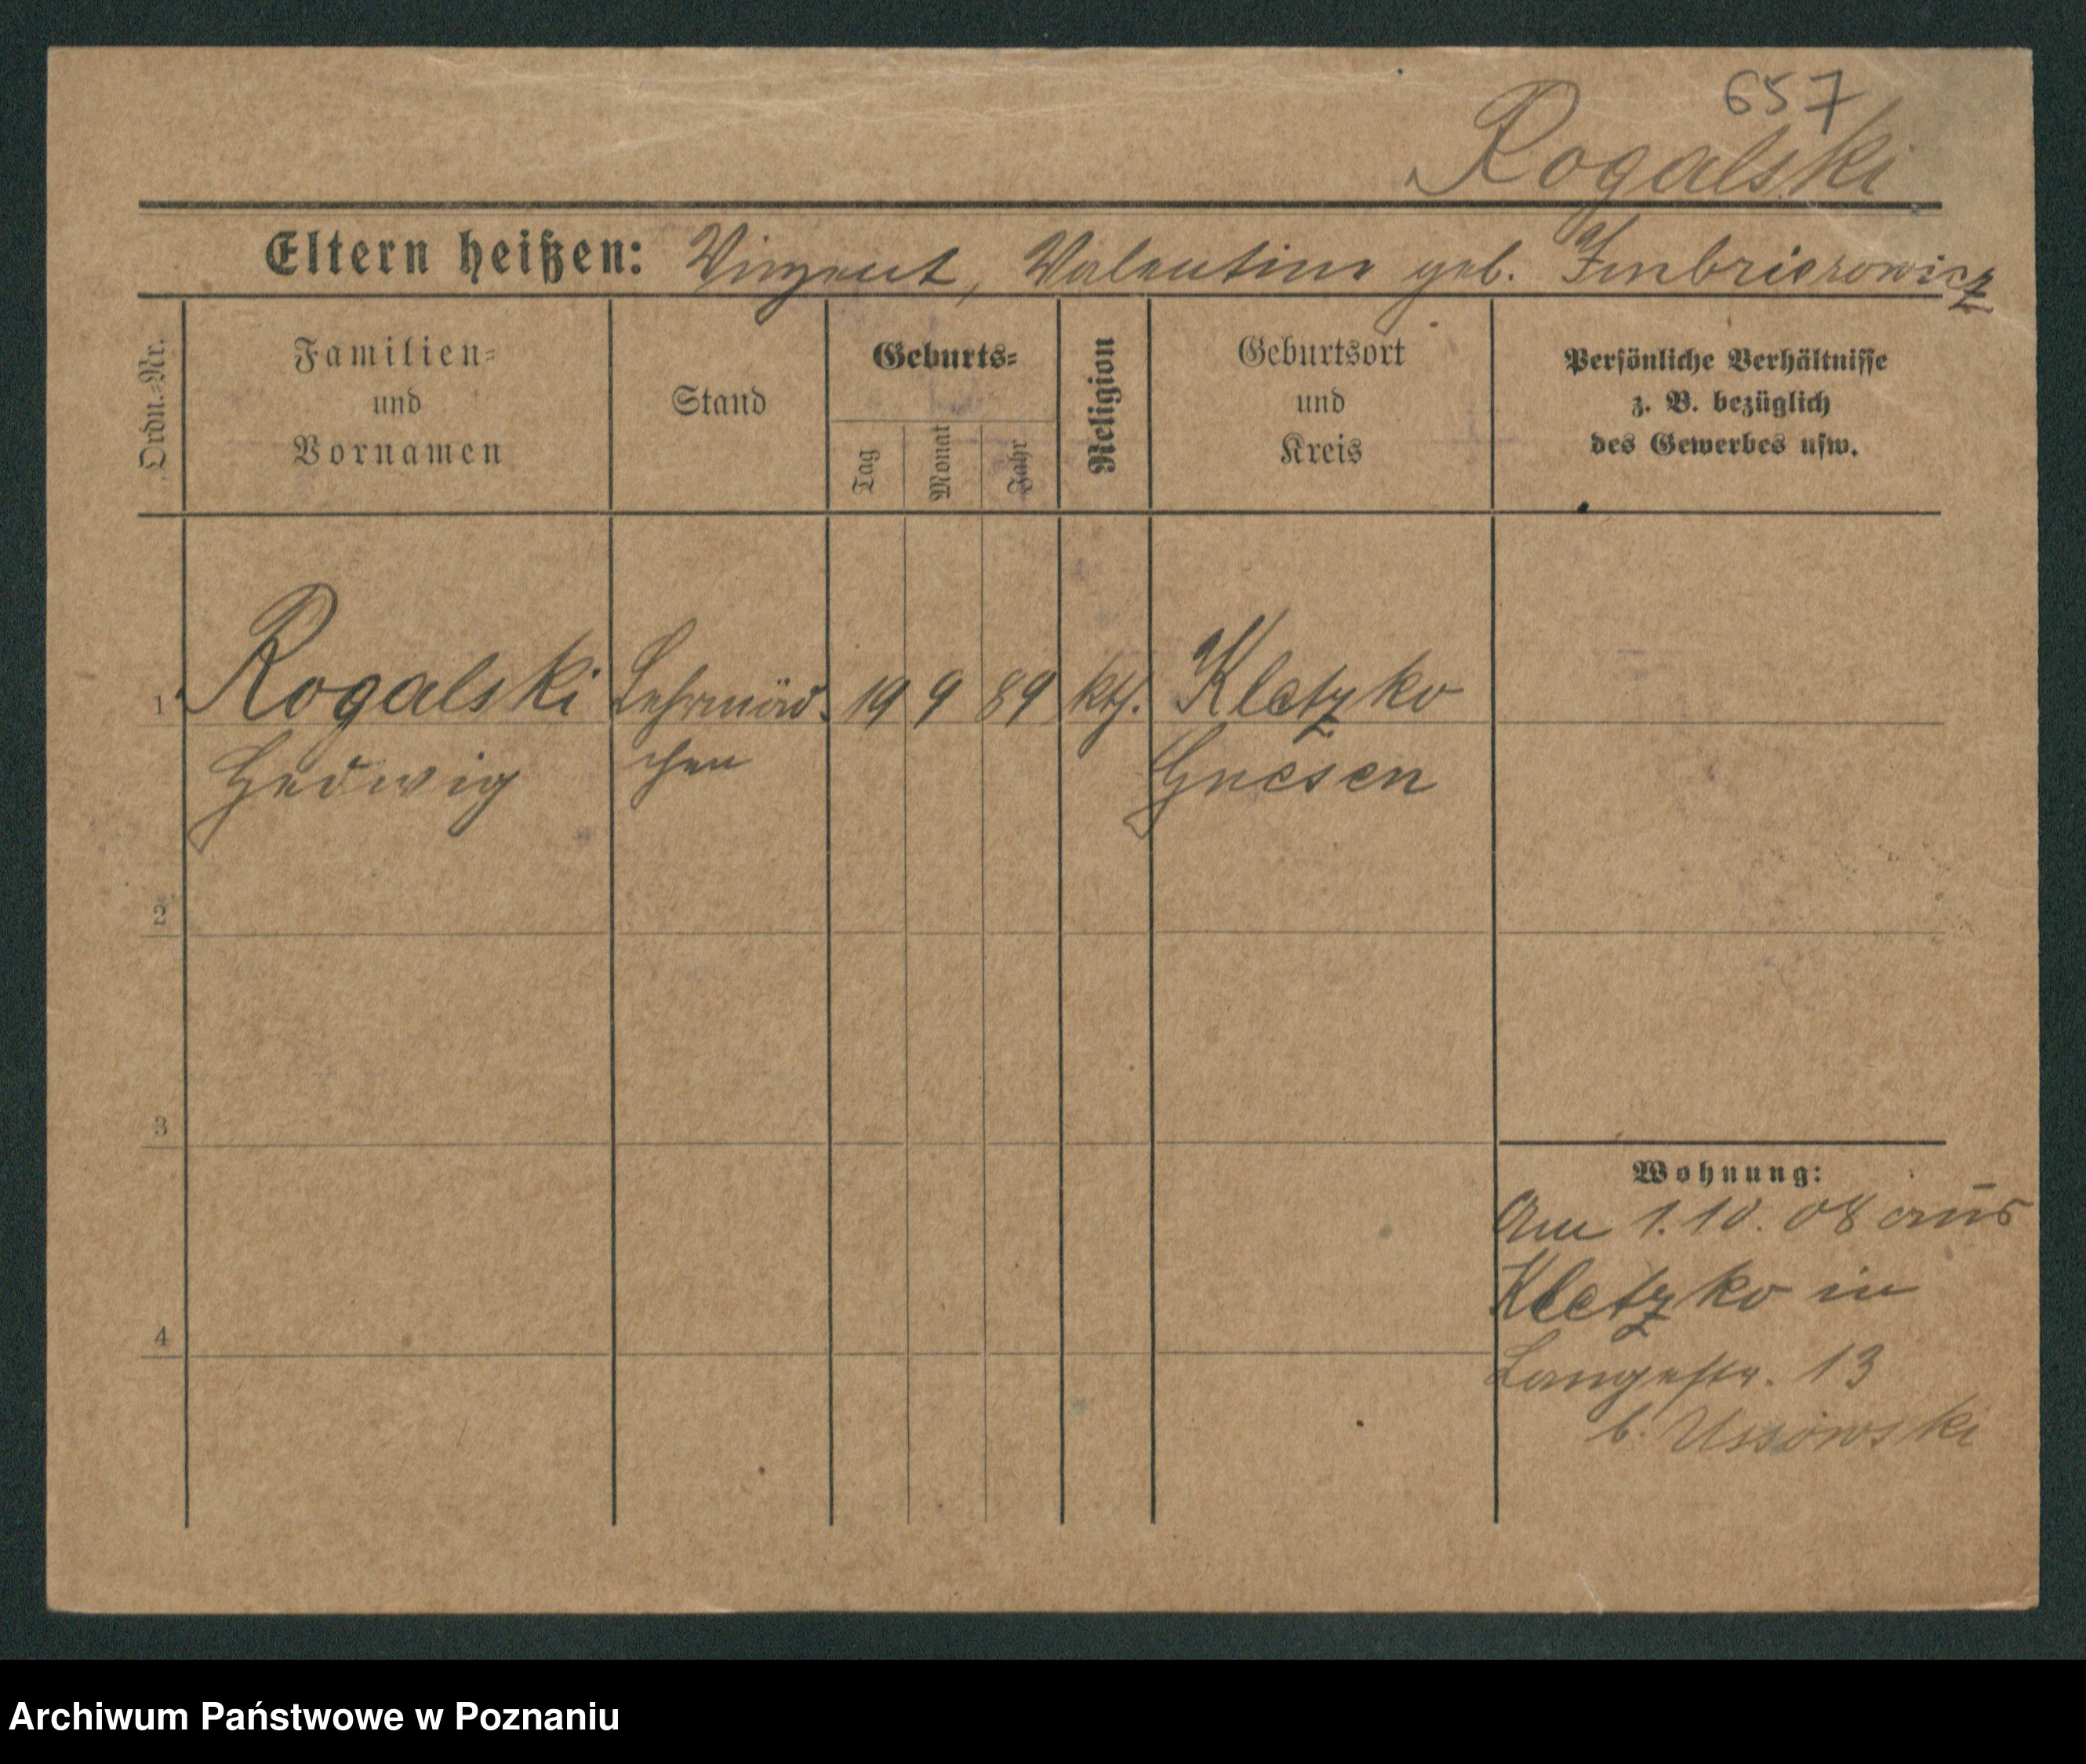 657
Rogalski
Eltern heißen: Vinzent, Valentine geb. Imbrierowicz
Ordn.-Nr.
Familien-
und
Vornamen
Stand
Geburts-
Tag
Monat
Jahr
Religion
Geburtsort
und
Kreis
Persönliche Verhältnisse
z. B. bezüglich
des Gewerbes usw.
1 Rogalski Lehrmäd- 19 9 89 kth. Kletzko
Hedwig chen Gnesen
2
3
4
Wohnung:
Am 1.10.08 aus
Kletzko in
Langestr. 13
b. Ussowski
Archiwum Państwowe w Poznaniu